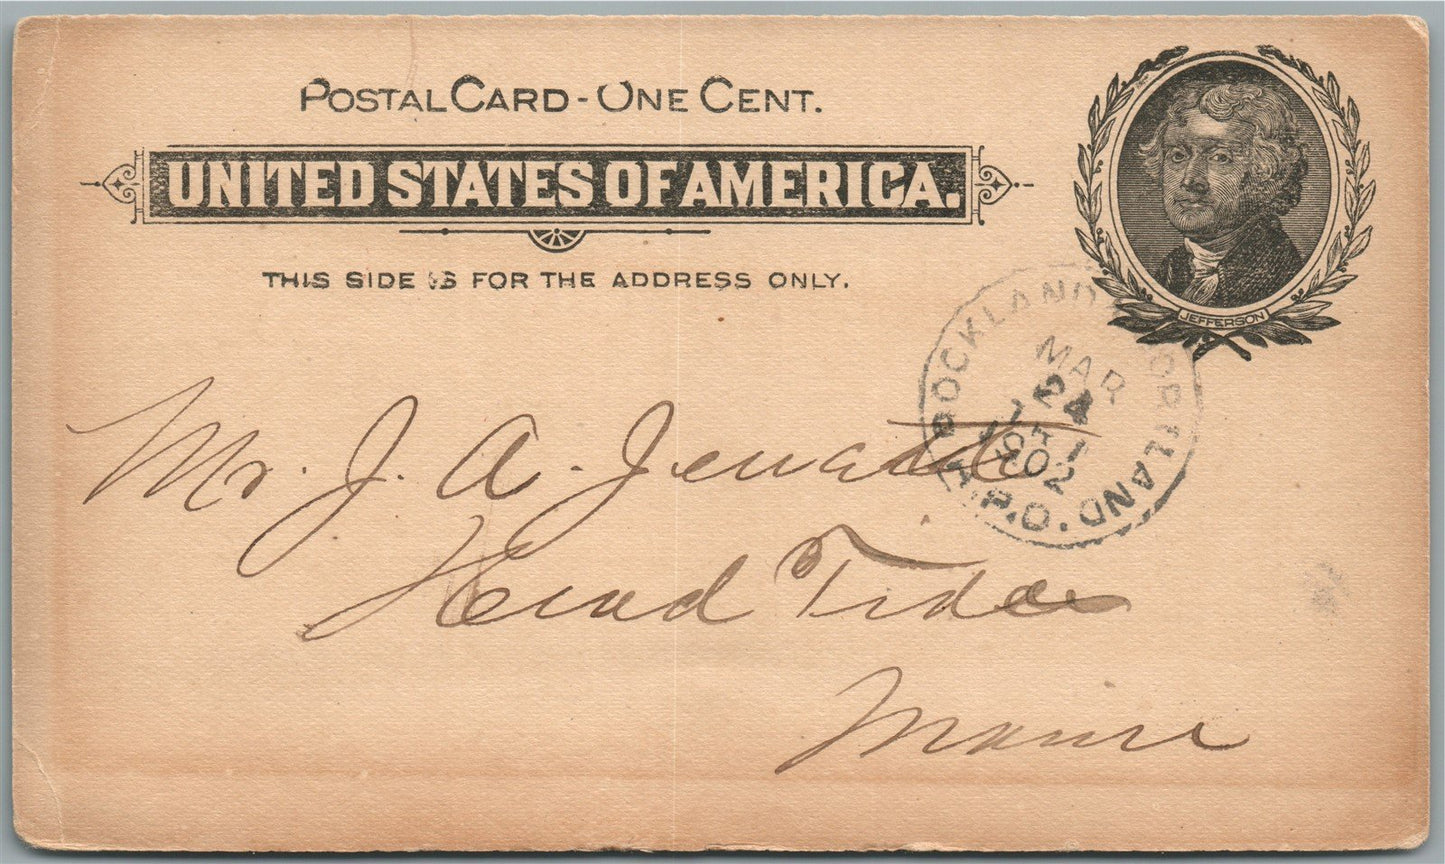 POSTAL CARD - ONE CENT.
UNITED STATES OF AMERICA.
THIS SIDE IS FOR THE ADDRESS ONLY.
JEFFERSON
ROCKLAND PORTLAND. R.P.O.
MAR
24
1902
Mr. J. A. Jewett
Head Tide
Maine